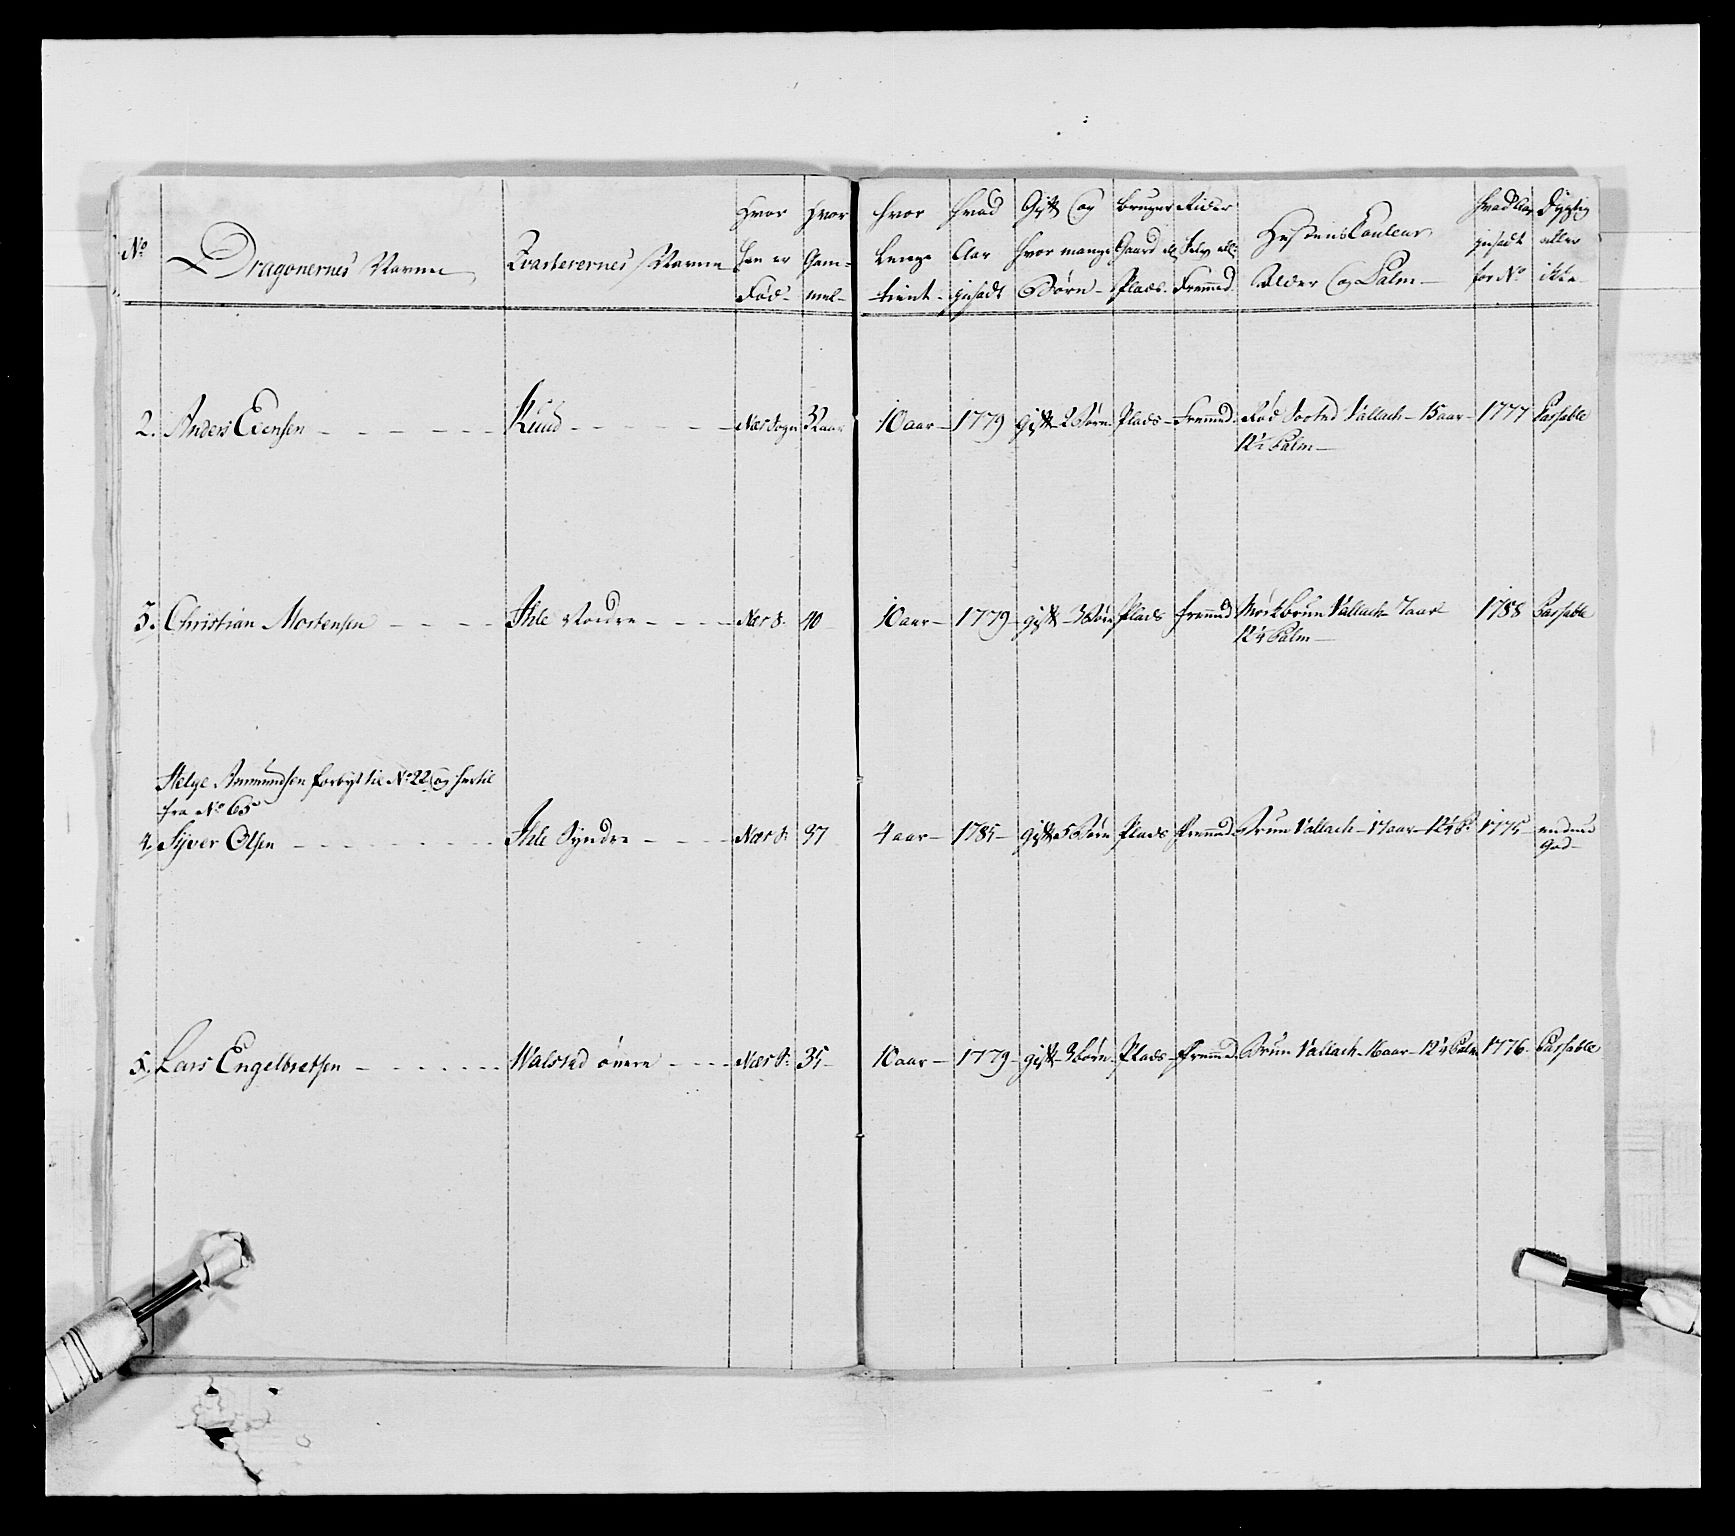 No. Dragonernes Navne Qvarterernes Navne Hvor han er Fød Hvor Gam-mel Hvor Længe tient Hvad Aar giĥsadt Gift og Hvor mange Børn Bruger Gaard ell Plads Rider Selv ell: Fremmed Hestens Couleur Alder og Palm Hvad Aar giĥsadt for No Dygtig eller ikke
2. Anders Evensen Ruud Næs Sogn 32 aar 10 aar 1779 gift 2 Børn Plads Fremmed Rød Sooted Vallach 15 aar 1777 Passable
12½ Palm
3. Christian Mortensen Ihle Nordre Næs S: 40 10 aar 1779 gift 3 Børn Plads fremmed Mørkbrun Vallach 7 aar 1788 Passable
12¼ Palm
Helge Ammundsen forbyt til No 22 og hertil
fra No 65
4. Syver Olsen Ihle Syndre Næs S: 37 4 aar 1785 gift 5 Børn Plads Fremmed Brun Vallach 17 aar 12¼ P: 1775 endnu
God
5. Lars Engelbretsen Walstad øvere Næs S: 35 10 aar 1779 gift 3 Børn Plads Fremmed Brun Vallach 16 aar 12¼ Palm 1776 Passable